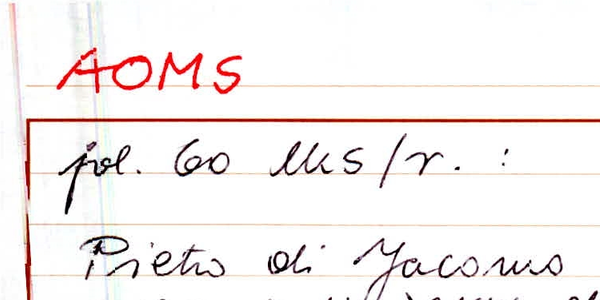 AOMS
fol. 60 MS/r. :
Pietro di Jacomo